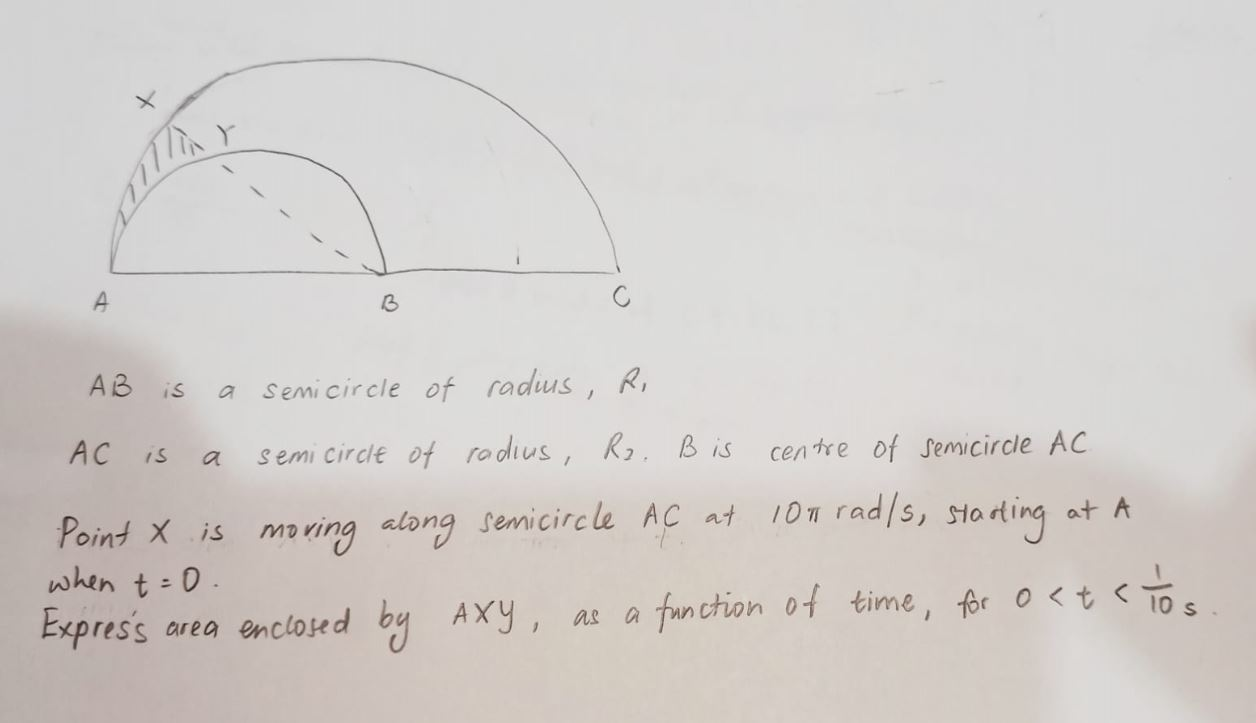 X
Y
A B C
AB is a semicircle of radius, R₁
AC is a semicircle of radius, R₂. B is centre of semicircle AC
Point X is moving along semicircle AC at 10π rad/s, starting at A
when t = 0.
Express area enclosed by AXY, as a function of time, for 0 < t < 1/10 s.